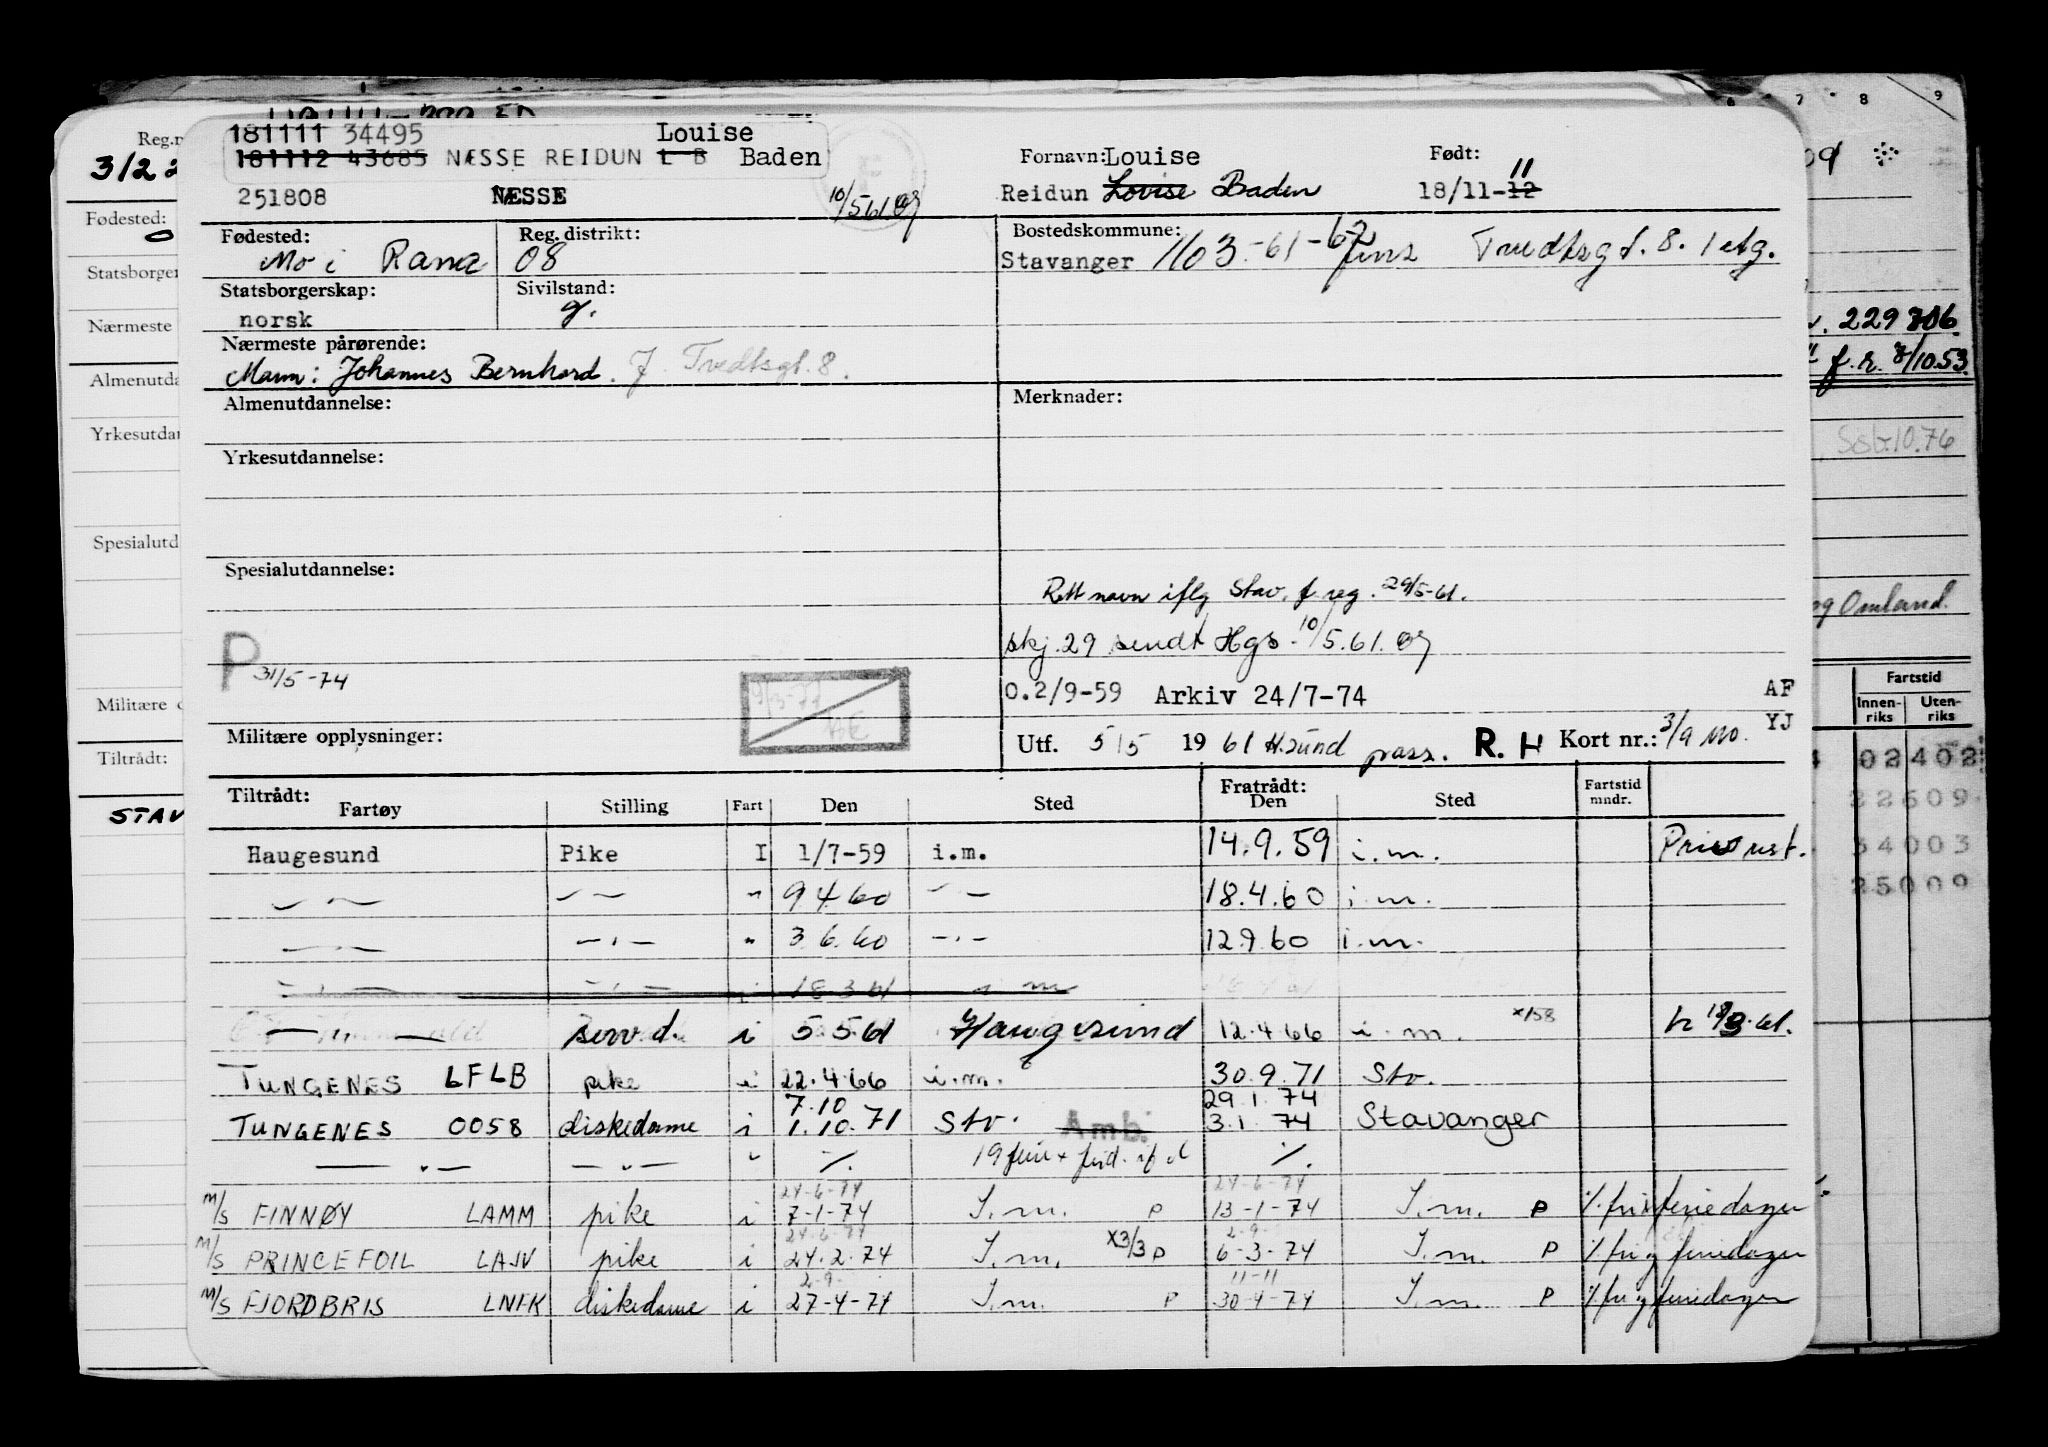 181111 34495 Louise
181112 43685 NÆSSE REIDUN L B Baden
251808 NÆSSE 10/5 61
Fornavn: Louise
Reidun Lovise Baden
Født: 11
18/11-12
Fødested:
Mo i Rana
Reg. distrikt:
08
Bostedskommune:
Stavanger 1103-61-62 8. 1 etg.
Statsborgerskap:
norsk
Sivilstand:
g.
Nærmeste pårørende:
Mann: Johannes Bernhard. J. Tvedtsgt. 8.
Almenutdannelse:
Merknader:
Yrkesutdannelse:
Spesialutdannelse:
Rett navn iflg Stav. f.reg. 29/5-61.
skj. 29 sendt Hgs. 10/5.61.
P 31/5-74
0.2/9-59 Arkiv 24/7-74 AF
YJ
Militære opplysninger:
Utf. 5/5 1961 H.sund pass. R. H Kort nr.: 3/9 MO.
Tiltrådt: Fratrådt:
Fartøy Stilling Fart Den Sted Den Sted Fartstid mndr.
Haugesund Pike I 1/7-59 i.m. 14.9.59 i.m.
— " — — " — " 9.4.60 — " — 18.4.60 i.m.
— " — — " — " 3.6.60 — " — 12.9.60 i.m.
— " — — " — i 18 3 61 i m
— " — serv.d. i 5 5 61 Haugesund 12.4.66 i.m. x/58
TUNGENES LFLB pike i 22.4.66 i.m. 30.9.71 Stv.
7.10 29.1.74
TUNGENES 0058 diskedame i 1.10.71 Stv. Amb. 3.1.74 Stavanger
— " — — " — " ·/. 19 ·/.
24-6-74 24-6-74
m/s FINNØY LAMM pike i 7-1-74 I.m. P 13-1-74 I.m. P feriedager
24.6.74 2-9-
m/s PRINCEFOIL LAJV pike i 24.2.74 I.m. x3/3 P 6-3-74 I.m. P ·/. fri og feriedager
2-9- 11-11
m/s FJORDBRIS LNFK diskedame i 27-4-74 I.m. P 30-4-74 I.m. P ·/. fri og feriedager
Reg.n
3/2 2
Fødested:
Statsborger
Nærmeste
Almenutda
Yrkesutdan
Spesialutd
Militære o
Tiltrådt:
STAV
7 8 9
229 306.
f. r. 8/10.53.
10.76
og Omland.
Fartstid
Innen-
riks
Uten-
riks
02402
22609
34003
25009